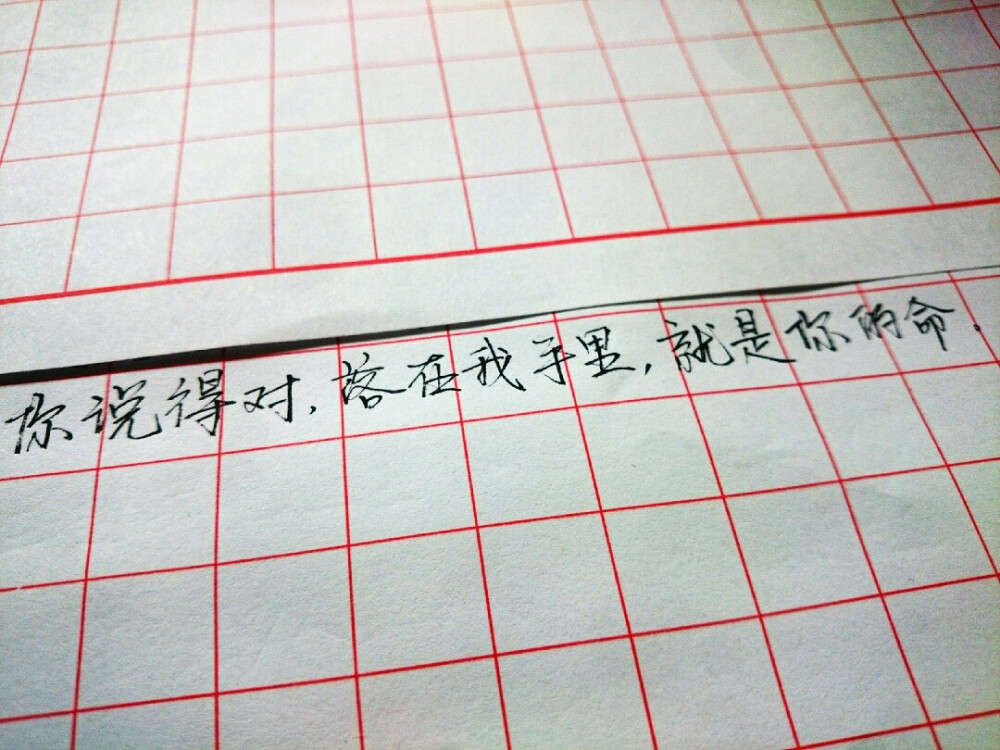 你说得对,落在我手里,就是你的命.